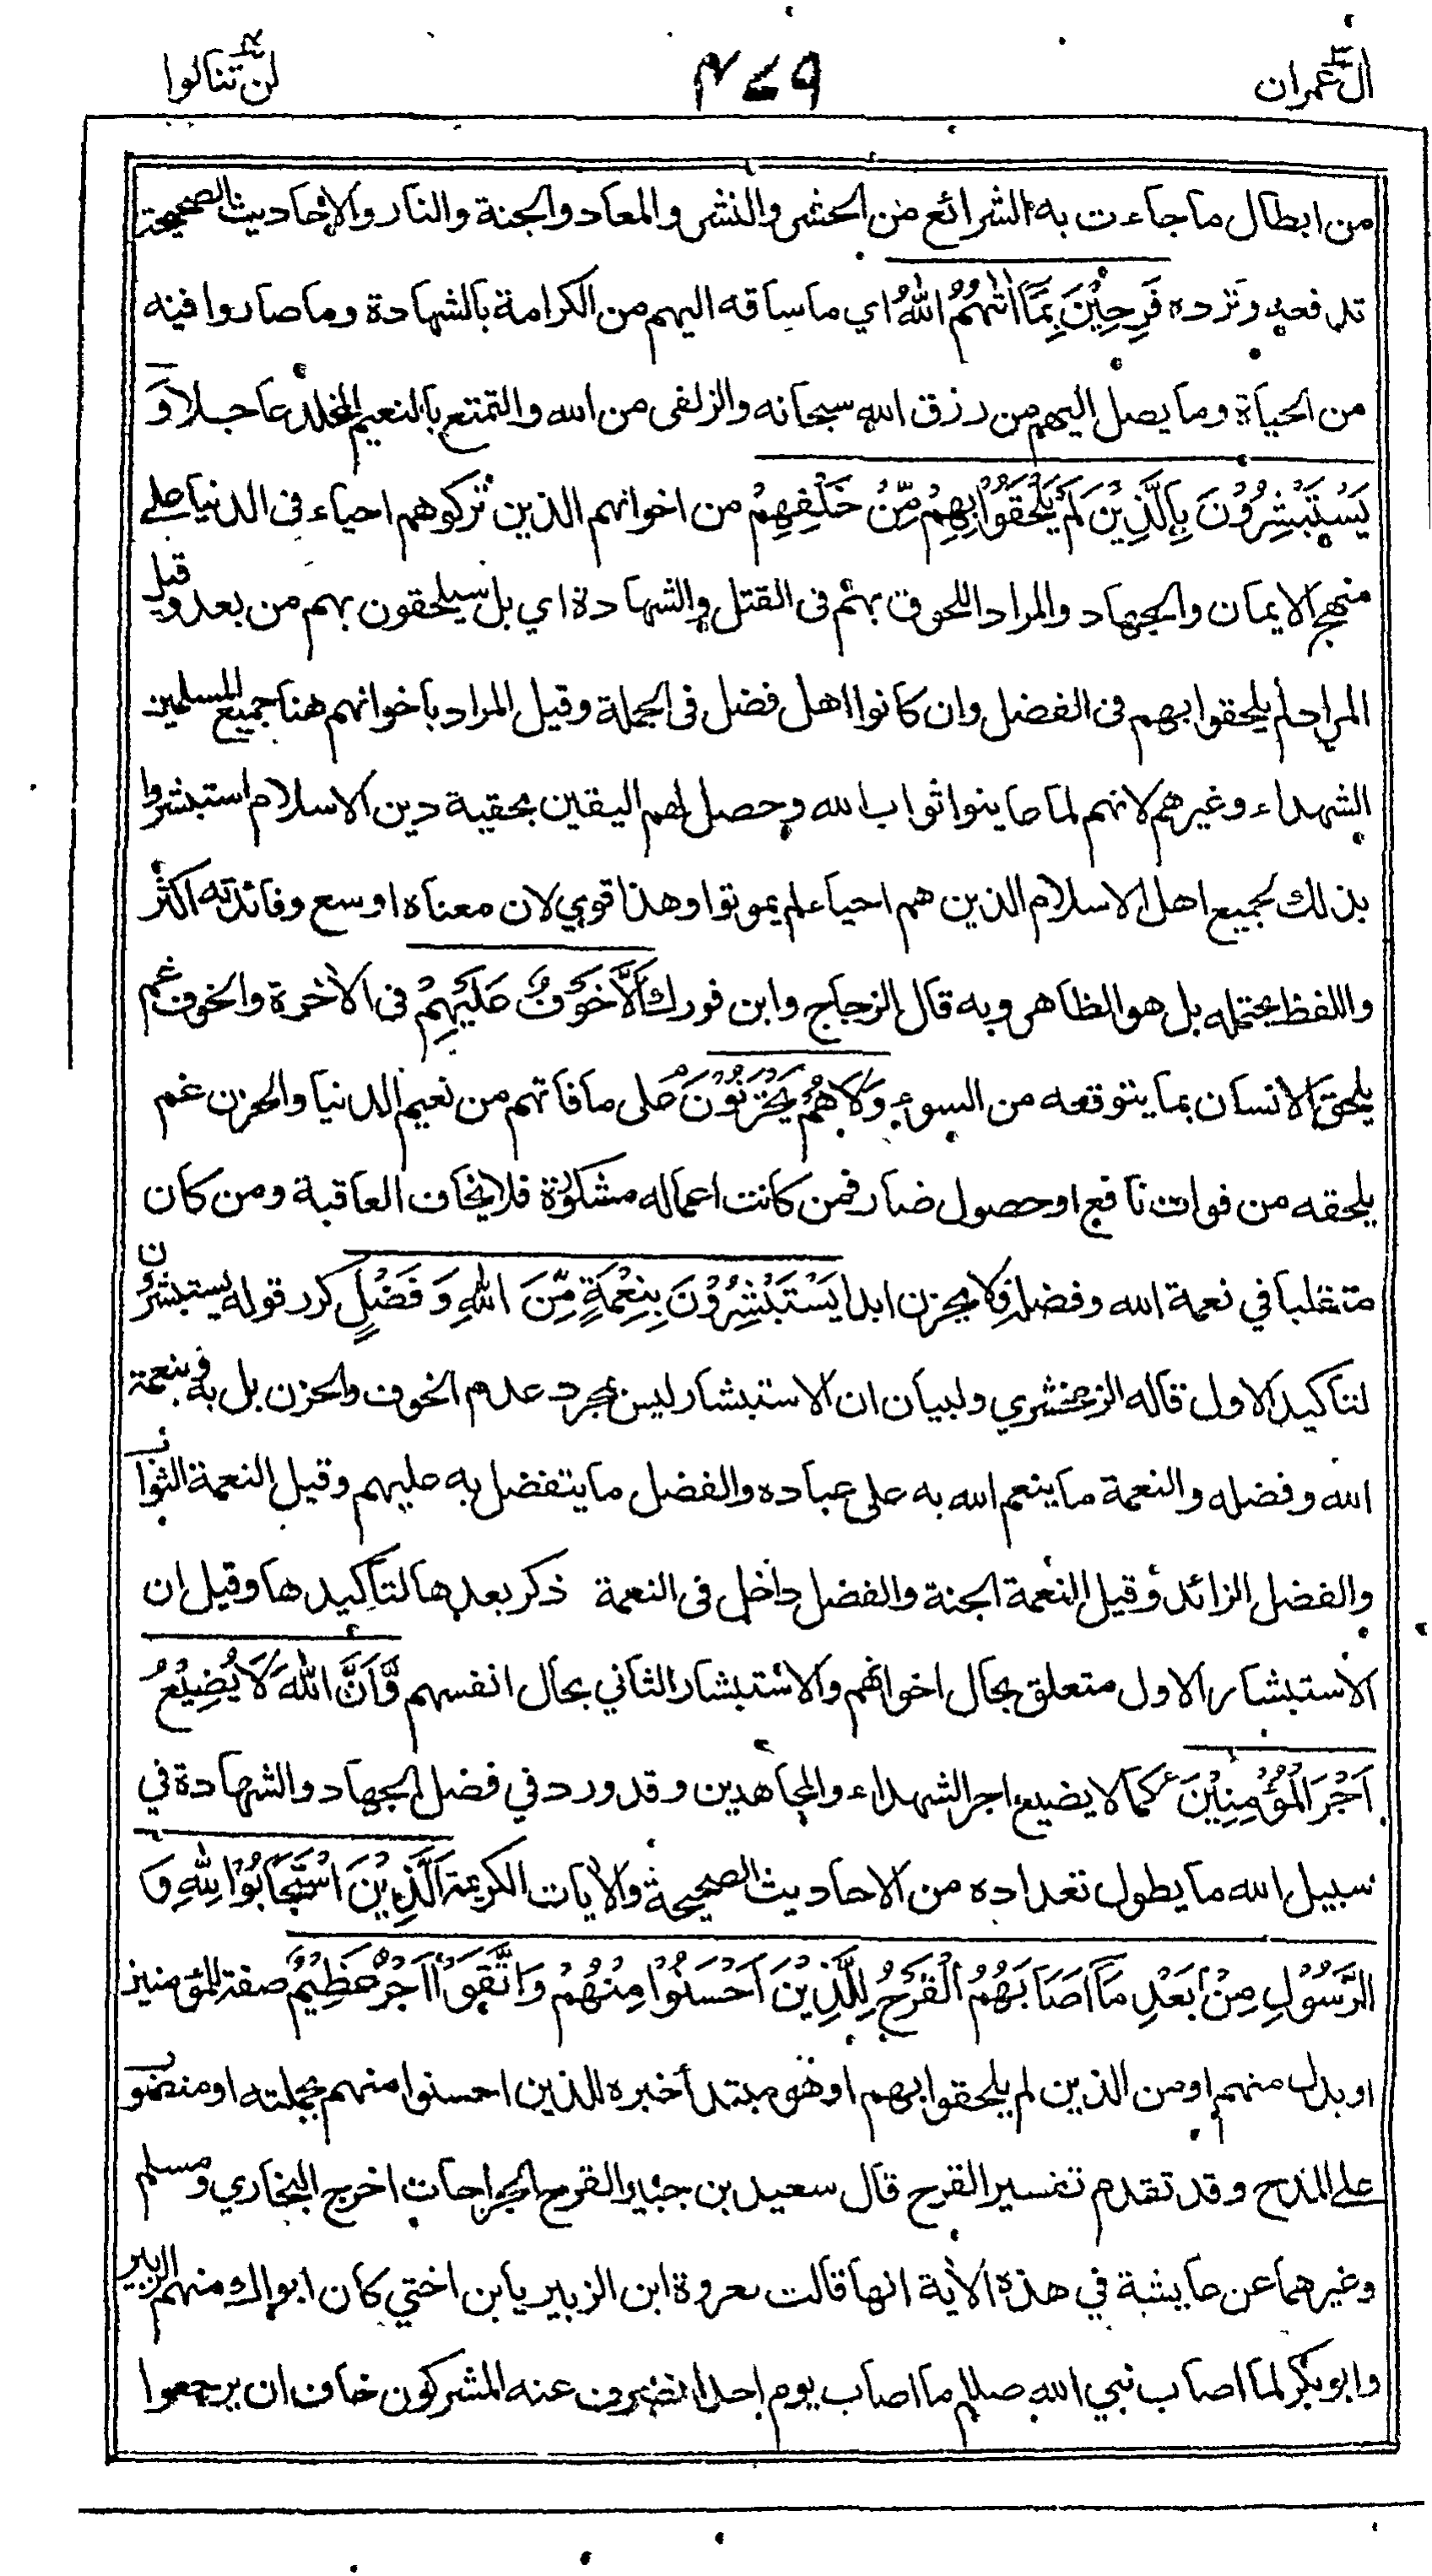 اٰل عمران ٣
٤٧٩
لن تنالوا ٤
من ابطال ما جاءت به الشرائع من الحشر والنشر والمعاد والجنة والنار والاحاديث الصحيحة
تدفعه وترده فَرِحِيْنَ بِمَآ اٰتٰهُمُ اللّٰهُ اي ما ساقه اليهم من الكرامة بالشهادة وما صاروا فيه
من الحياة وما يصل اليهم من رزق الله سبحانه والزلفى من الله والتمتع بالنعيم المخلد عاجلا وَ
يَسْتَبْشِرُوْنَ بِالَّذِيْنَ لَمْ يَلْحَقُوْا بِهِمْ مِّنْ خَلْفِهِمْ من اخوانهم الذين تركوهم احياء فى الدنيا على
منهج الايمان والجهاد والمراد اللحوق بهم فى القتل والشهادة اي بل سيلحقون بهم من بعد وقيل
المراد لم يلحقوا بهم فى الفضل وان كانوا اهل فضل فى الجملة وقيل المراد باخوانهم هنا جميع المسلمين
الشهداء وغيرهم لانهم لما عاينوا ثواب الله وحصل لهم اليقين بحقية دين الاسلام استبشروا
بذلك لجميع اهل الاسلام الذين هم احياء لم يموتوا وهذا قوي لان معناه اوسع وفائدته اكثر
واللفظ يحتمله بل هو الظاهر وبه قال الزجاج وابن فورك اَلَّا خَوْفٌ عَلَيْهِمْ فى الاٰخرة والخوف غم
يلحق الانسان بما يتوقعه من السوء وَلَا هُمْ يَحْزَنُوْنَ على ما فاتهم من نعيم الدنيا والحزن غم
يلحقه من فوات نافع او حصول ضار فمن كانت اعماله مشكورة فلا يخاف العاقبة ومن كان
متقلبا في نعمة الله وفضله فلا يحزن ابدا يَسْتَبْشِرُوْنَ بِنِعْمَةٍ مِّنَ اللّٰهِ وَفَضْلٍ كرر قوله يستبشرون
لتاكيد الاول قاله الزمخشري ولبيان ان الاستبشار ليس بمجرد عدم الخوف والحزن بل به وبنعمة
الله وفضله والنعمة ما ينعم الله به على عباده والفضل ما يتفضل به عليهم وقيل النعمة الثواب
والفضل الزائد وقيل النعمة الجنة والفضل داخل فى النعمة ذكر بعدها لتاكيدها وقيل ان
الاستبشار الاول متعلق بحال اخوانهم والاستبشار الثاني بحال انفسهم وَّاَنَّ اللّٰهَ لَا يُضِيْعُ
اَجْرَ الْمُؤْمِنِيْنَ كما لا يضيع اجر الشهداء والمجاهدين وقد ورد في فضل الجهاد والشهادة في
سبيل الله ما يطول تعداده من الاحاديث الصحيحة والاٰيات الكريمة اَلَّذِيْنَ اسْتَجَابُوْا لِلّٰهِ وَ
الرَّسُوْلِ مِنْۢ بَعْدِ مَآ اَصَابَهُمُ الْقَرْحُ لِلَّذِيْنَ اَحْسَنُوْا مِنْهُمْ وَاتَّقَوْا اَجْرٌ عَظِيْمٌ صفة للمؤمنين
او بدل منهم او من الذين لم يلحقوا بهم او هو مبتدأ خبره للذين احسنوا منهم بجملته او منصوب
على المدح وقد تقدم تفسير القرح قال سعيد بن جبير القرح الجراحات اخرج البخاري ومسلم
وغيرهما عن عايشة في هذه الاٰية انها قالت لعروة ابن الزبير يا بن اختي كان ابواك منهم الزبير
وابو بكر لما اصاب نبي الله صللم ما اصاب يوم احد انصرف عنه المشركون خاف ان يرجعوا